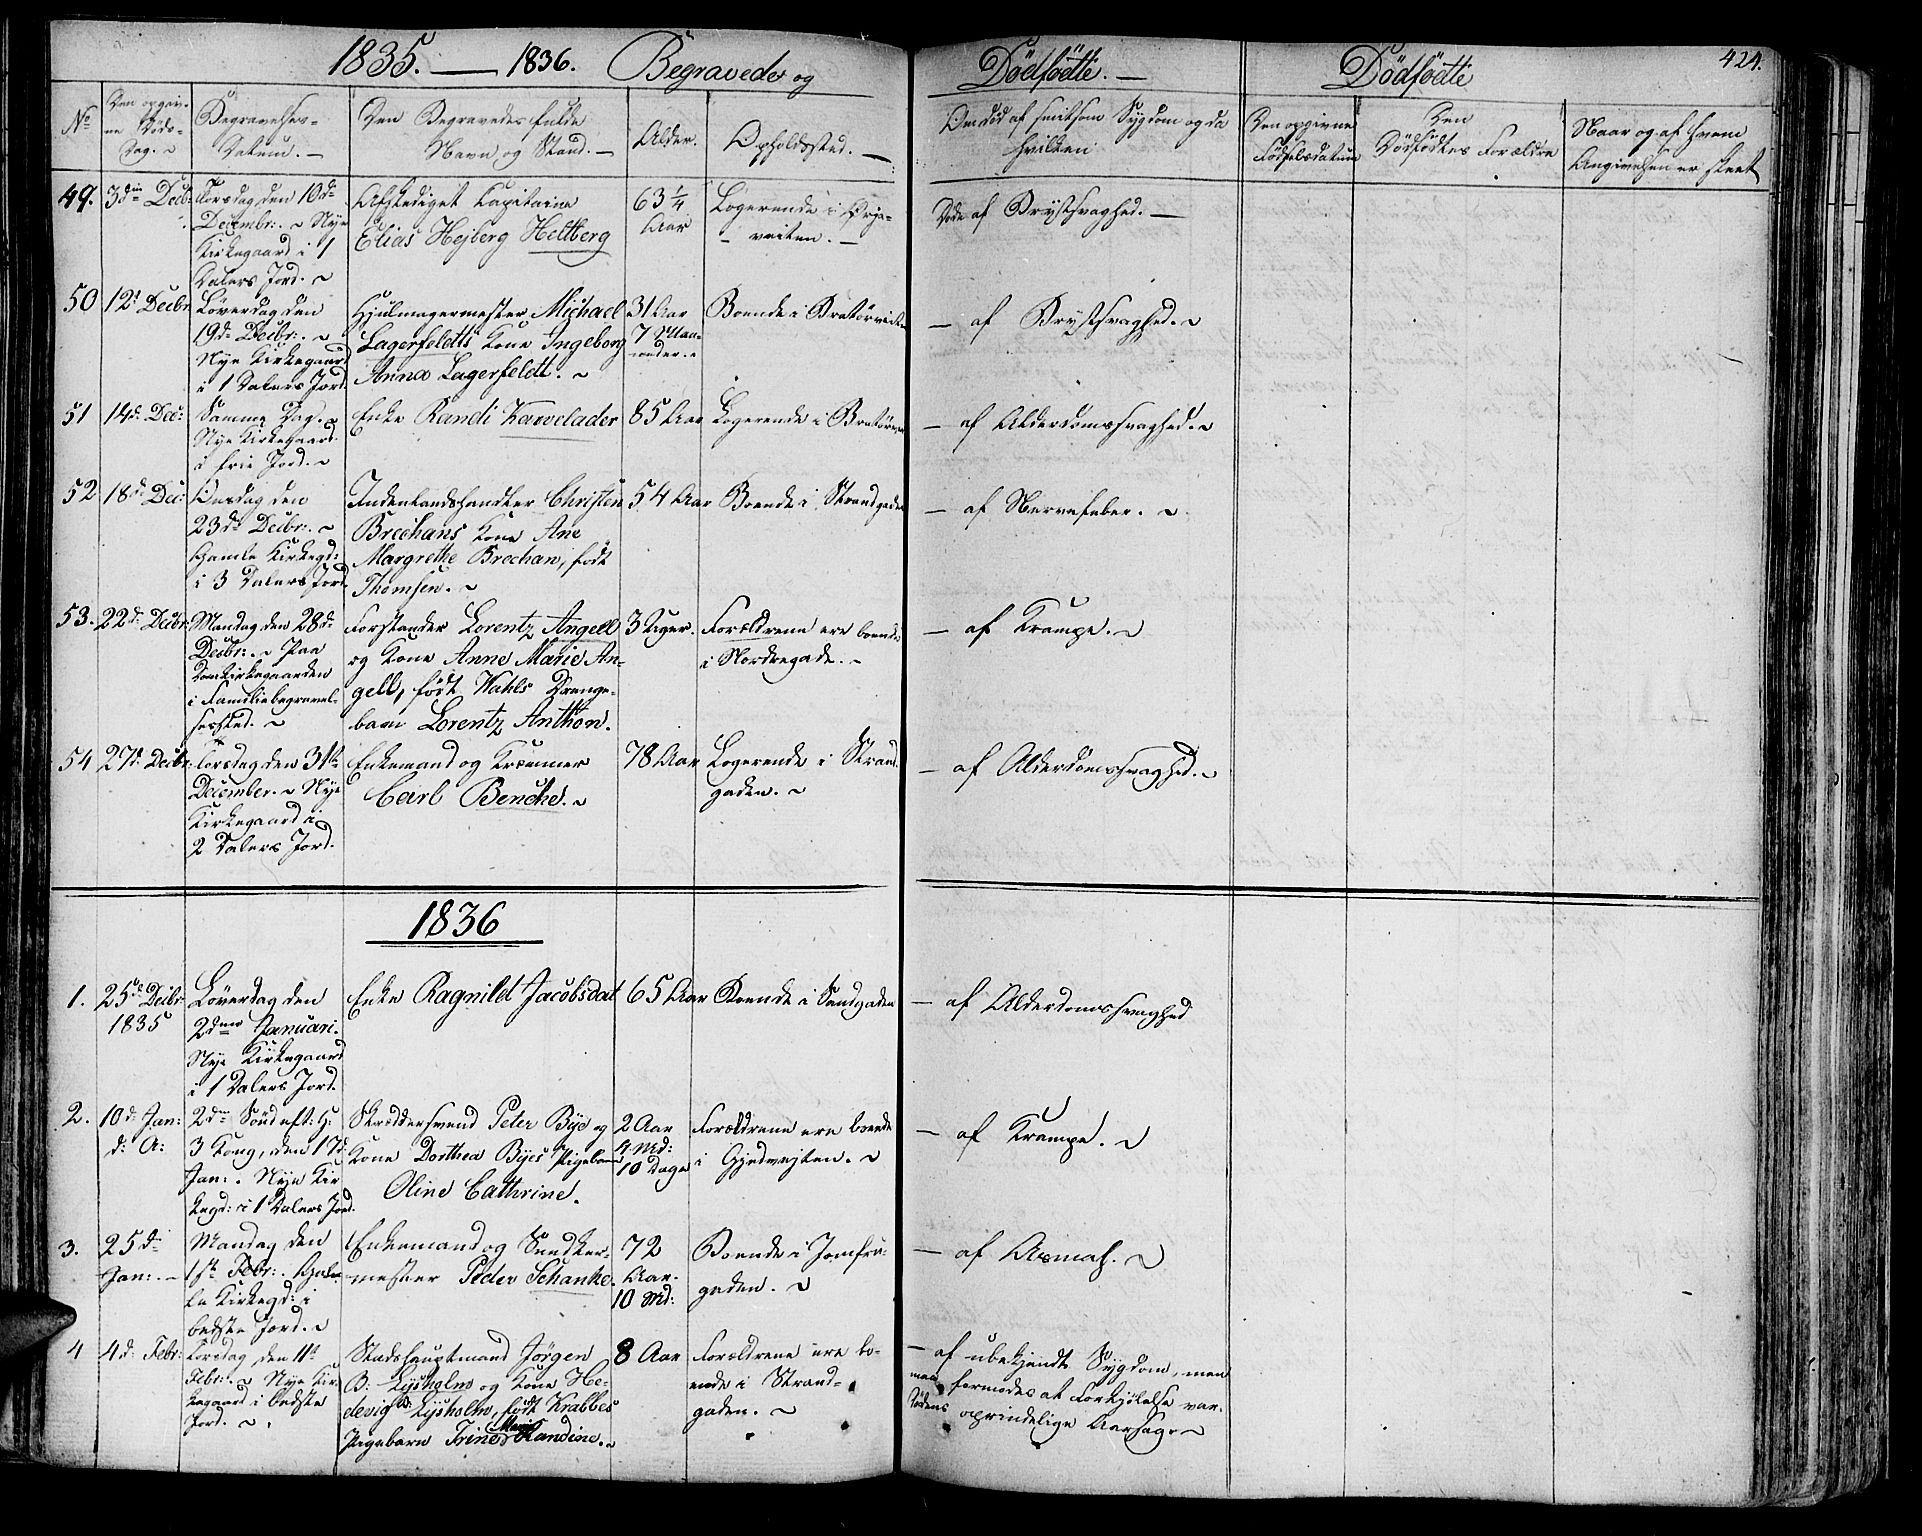 1835. — 1836. Begravede og Dødfödte. — Dødfödte 424.
No
Den opgiv-
ne Døds-
Dag.
Begravelses-
Datum. —
Den Begravedes fulde
Navn og Stand. —
Alder.
Opholdssted. —
Om död af smitsom Sygdom og da
hvilken
Den opgivne
Födselsdatum
Den
Dödfödtes Forældre
Naar og af hvem
Angivelsen er skeet
49. 3die Decbr:
Torsdag den 10de
Decembr:. Nye
Kirkegaard i 1
Dalers Jord.
Afskediget Capitaine
Elias Hejberg Heltberg
63 1/4
Aar
Logerende i Örje-
veiten. —
Döde af Brystsvaghed. —
50 12te Decbr.
Löverdag den
19de Decbr:.
Nye Kirkegaard
i 1 Dalers Jord.
Hjulmagermester Michael
Lagerfeldts Kone Ingeborg
Anna Lagerfeldt.
31 Aar
7 Maa-
neder.
Boende i Bratörveiten
— af Brystsvaghed.
51 14de Dec:
Samme Dag.
Nye Kirkegaard
i frie Jord.
Enke Randi Karvelader
85 Aar
Logerende i
— af Alderdomssvaghed.
52 18de Dec:
Onsdag den
23de Decbr:.
Gamle Kirkegd:
i 3 Dalers Jord
Indenlandshandler Christen
Brechans Kone Ane
Margrethe Brechan, födt
Thomsen.
54 Aar
Boende i Strandgaden
— af Nervefeber.
53. 22de Decbr:
Mandag den 28de
Decbr:. Paa
Domkirkegaarden
i Familiebegravel-
sessted.
Forstander Lorentz Angell
og Kone Anne Marie An-
gell, födt Wahls Drenge-
barn Lorentz Anthon.
3 Uger.
Forældrene ere boende
i Nordregade.
— af Krampe.
54 27de Decbr:
Torsdag den 31te
December. Nye
Kirkegaard i
2 Dalers Jord.
Enkemand og Kræmmer
Carl Benche.
78 Aar
Logerende i Strand
gaden.
— af Alderdomssvaghed.
1836
1. 25de Decbr:
1835
Löverdag den
2den Januari.
Nye Kirkegaard
i 1 Dalers Jord.
Enke Ragnild Jacobsdat
65 Aar
Boende i Sandgaden
— af Alderdomssvaghed
2. 10de Jan:
d: A:
2den Sönd eft: H:
3 Kong, den 17de
Jan:. Nye Kir
kegd: i 1 Dalers Jord.
Skræddersvend Peter Bye og
Kone Dorthea Byes Pigebarn
Oline Cathrine.
2 Aar
4 Md:
10 Dage
Forældrene ere boende
i Gjedvejten.
— af Krampe.
3. 25de
Jan:. —
Mandag den
1ste Febr:. Gam
le Kirkegd: i
bedste Jord.
Enkemand og
mester Peder Schanke.
72
Aar.
10 Md:
Boende i Jomfru-
gaden.
— af Asmah.
4 4de Febr:
Torsdag den 11te
Febr:. Nye Kir
kegaard i bedste
Jord.
Stadshauptmand Jörgen
B: Lysholm og Kone He-
devig Lysholm, födt Krabbes
Pigebarn Trine Marie Randine.
8 Aar
Forældrene ere bo-
ende i Strand-
gaden.
— af ubekjendt Sygdom, men
man formodes at Forkjölelse var
Dödens oprindelige Aarsag.